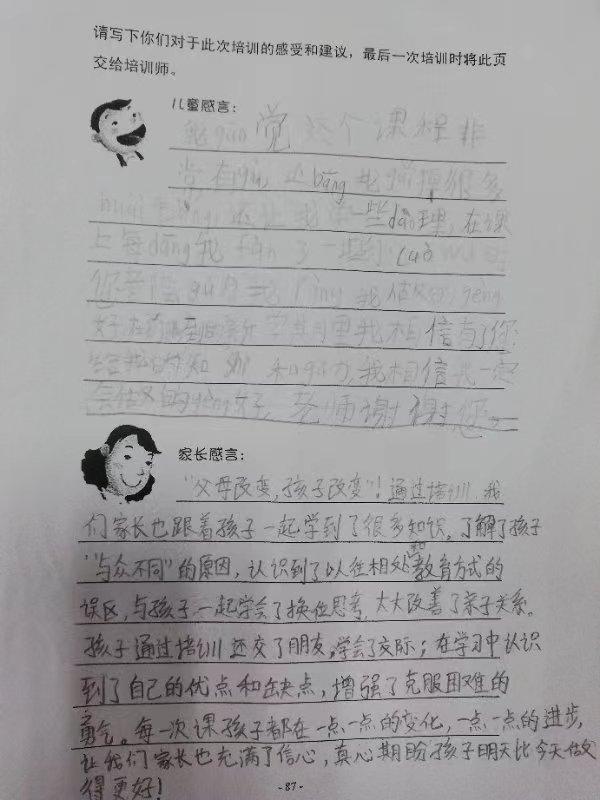 请写下你们对于此次培训的感受和建议，最后一次培训时将此页
交给培训师。
儿童感言：
我gǎn觉这个课程非
常有qù，还bāng我 很多
还让我 一些dào理，在课
上每dāng我fàn了一些 cuò wù时
您 我 ràng我 gèng
好 我相信有了您
给我的 知shi和 ，我相信我一定
会 的gèng好，老师谢谢您。
家长感言：
“父母改变，孩子改变”！通过培训，我
们家长也跟着孩子一起学到了很多知识，了解了孩子
“与众不同”的原因，认识到了以往相处和教育方式的
误区，与孩子一起学会了换位思考，大大改善了亲子关系。
孩子通过培训还交了朋友，学会了交际；在学习中认识
到了自己的优点和缺点，增强了克服困难的
勇气。每一次课孩子都在一点一点的变化，一点一点的进步，
让我们家长也充满了信心，真心期盼孩子明天比今天做
得更好！
-87-